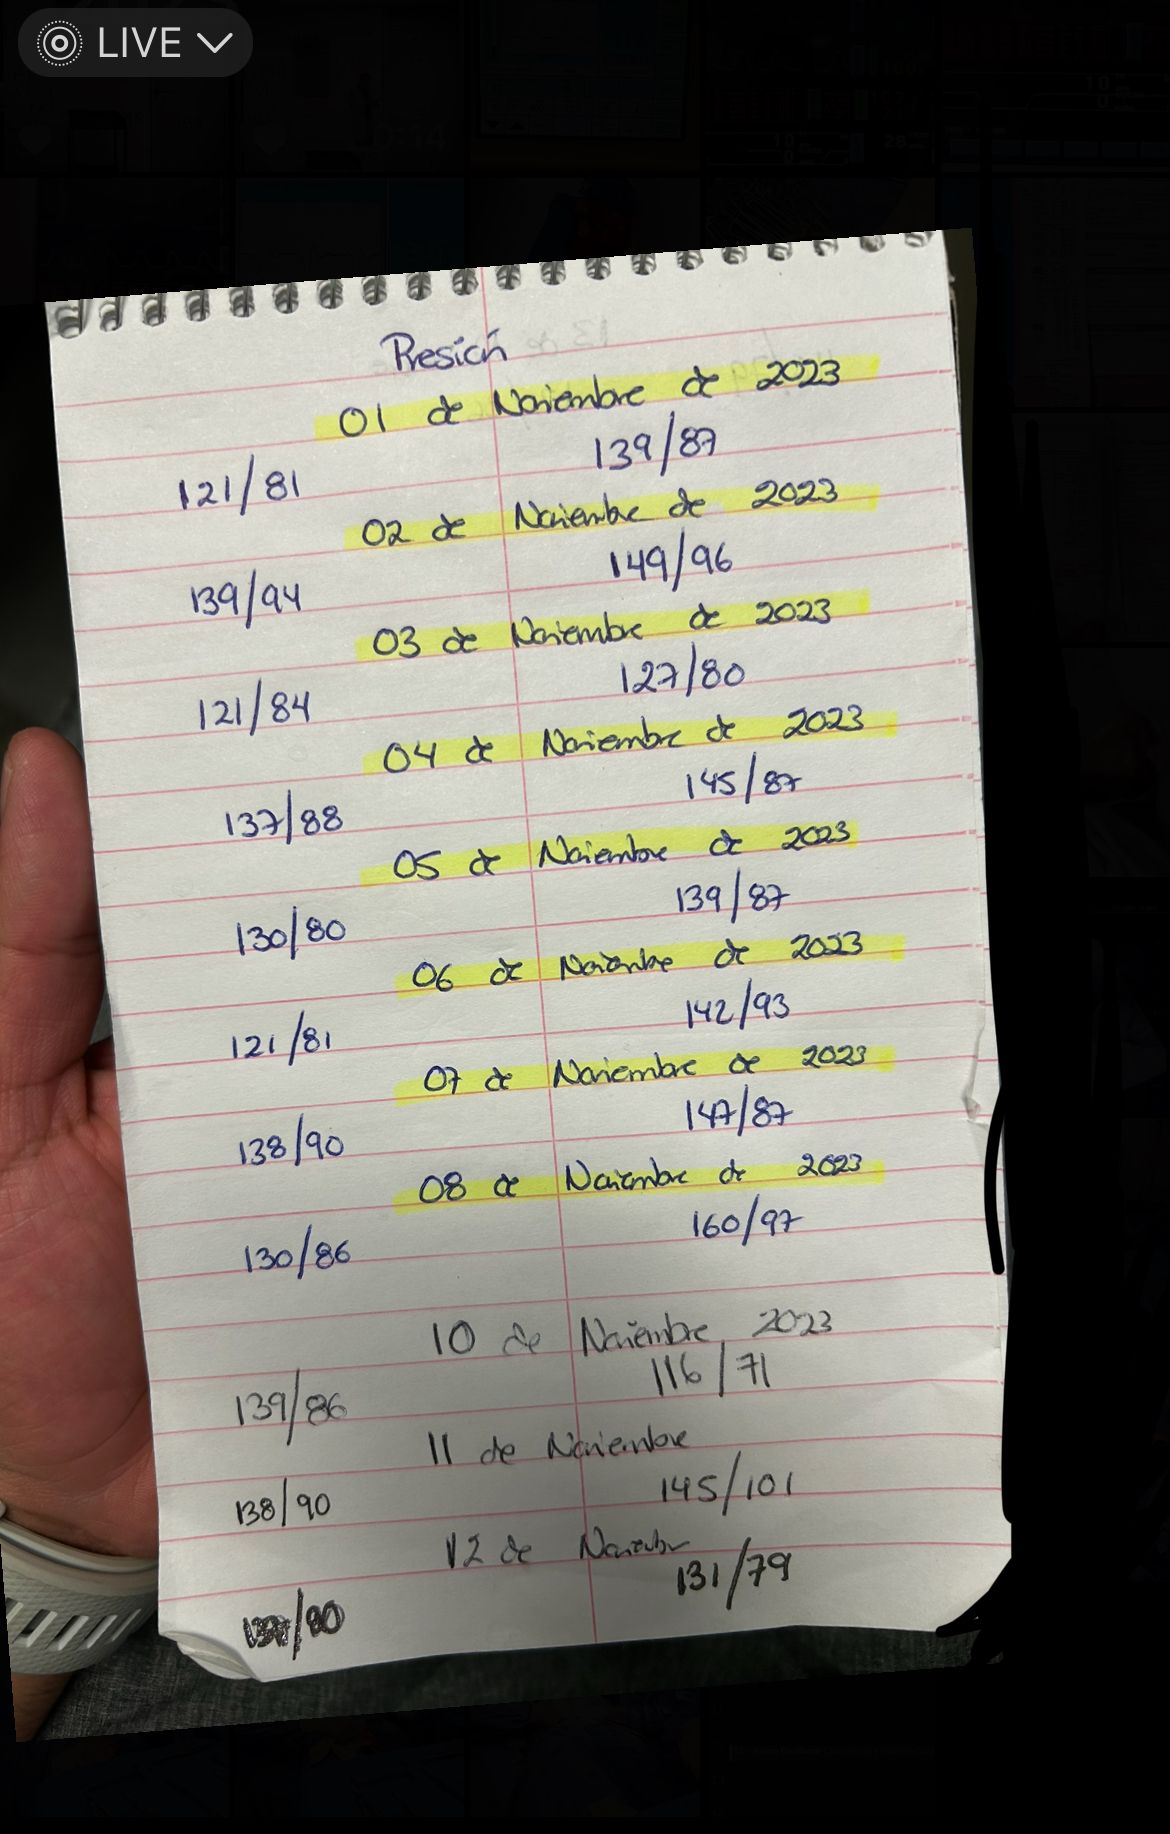 LIVE
Presión
01 de Noviembre de 2023
121/81 139/87
02 de Noviembre de 2023
139/94 149/96
03 de Noviembre de 2023
121/84 127/80
04 de Noviembre de 2023
137/88 145/87
05 de Noviembre de 2023
130/80 139/87
06 de Noviembre de 2023
121/81 142/93
07 de Noviembre de 2023
138/90 147/87
08 de Noviembre de 2023
130/86 160/97
10 de Noviembre 2023
139/86 116/71
11 de Noviembre
138/90 145/101
12 de Noviembr
131/79